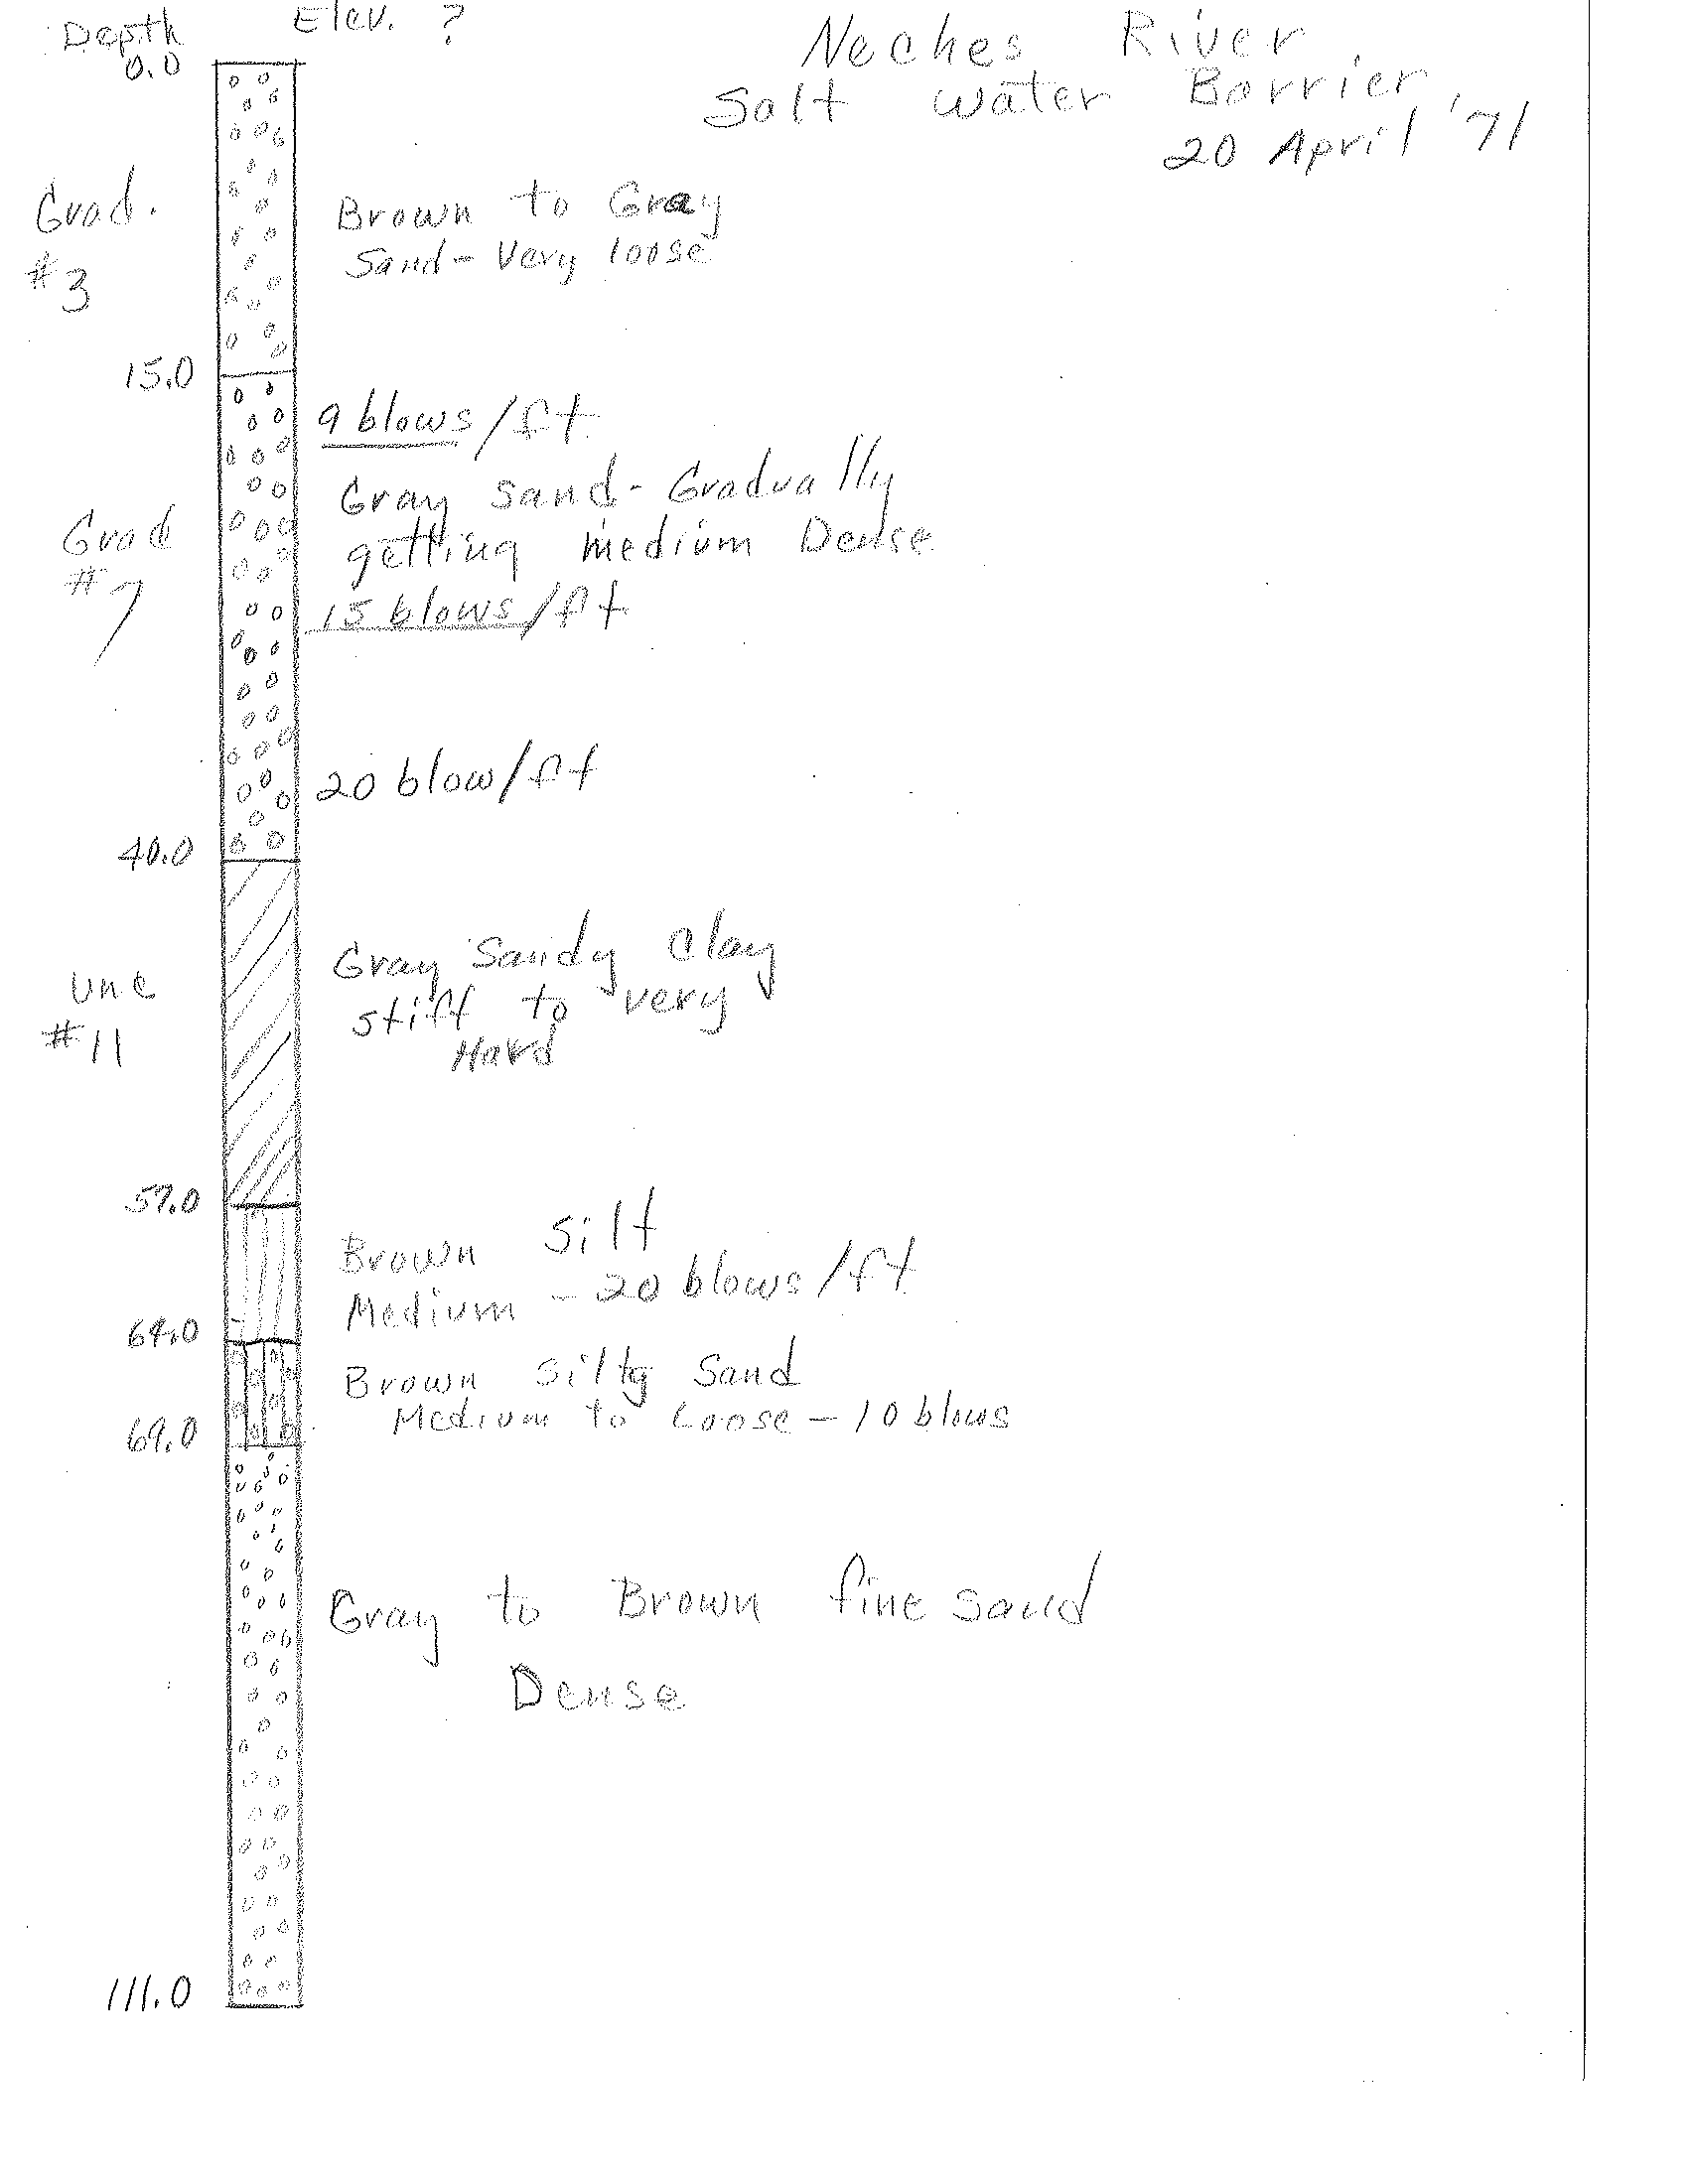 Depth Elev. ?
0.0
Neches River
Salt Water Barrier
20 April '71
Grad.
#3
Brown to Gray
Sand - Very loose
15.0
9 blows/ft
Gray sand - Gradually
getting medium Dense
Grad
#7
15 blows/ft
20 blow/ft
40.0
Gray Sandy Clay
stiff to very
Hard
unc
#11
57.0
Brown silt
Medium - 20 blows/ft
64.0
Brown silty sand
Medium to Loose - 10 blows
69.0
Gray to Brown fine sand
Dense
111.0